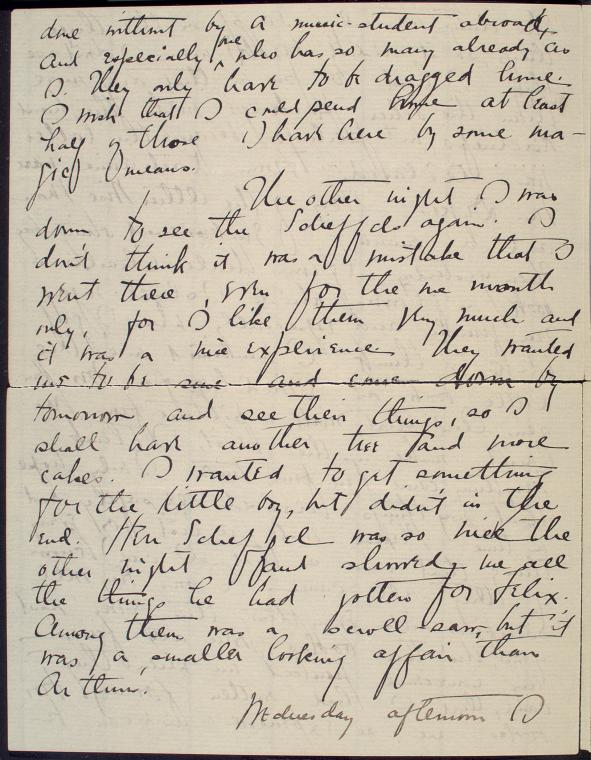 done without by a music-student abroad,
and especially one who has so many already as
I. They only have to be dragged home.
I wish that I could send home at least
half of those I have here by some ma-
gic means.
The other night I was
down to see the Scheffels again. I
don't think it was a mistake that I
went there, even for the one month
only, for I like them very much and
it was a nice experience. They wanted
me to be sure and come down by
tomorrow and see their things, so I
shall have another tree and more
cakes. I wanted to get something
for the little boy, but didn't in the
end. Herr Scheffel was so nice the
other night and showed me all
the things he had gotten for Felix.
Among them was a scroll-saw, but it
was a smaller looking affair than
Arthur's.
Wednesday afternoon I